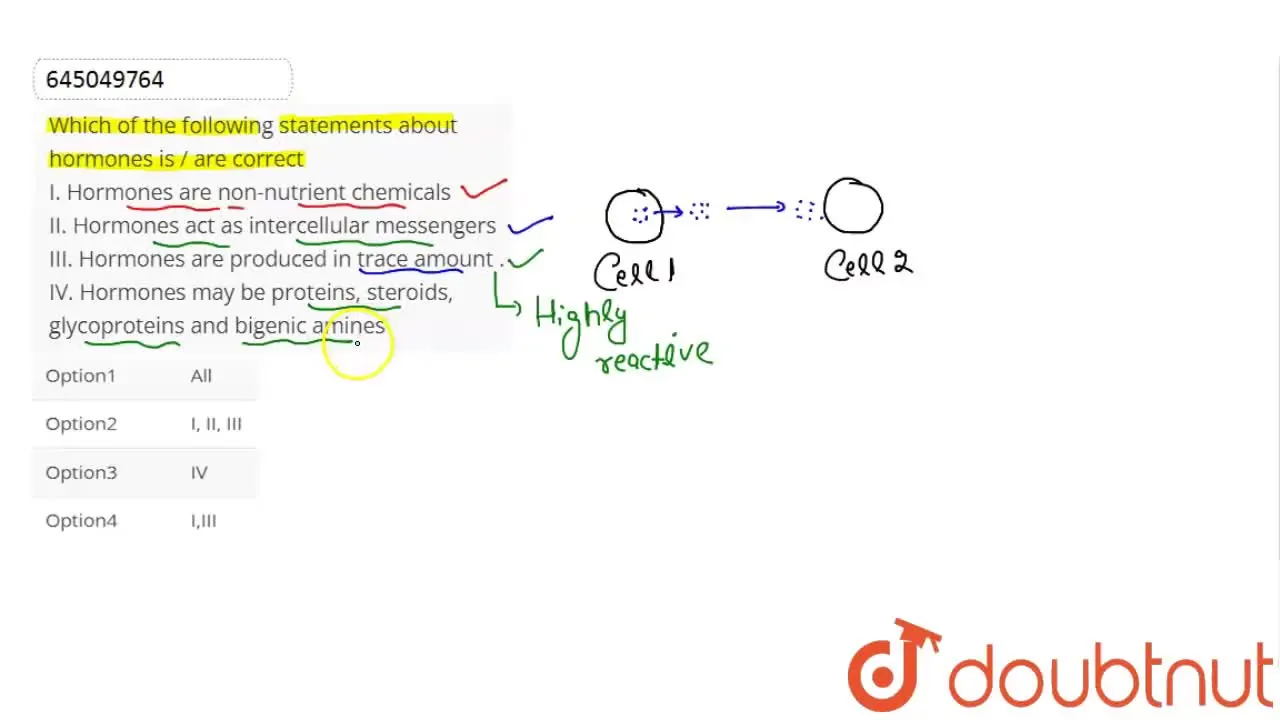 645049764
Which of the following statements about
hormones is / are correct
I. Hormones are non-nutrient chemicals
II. Hormones act as intercellular messengers
III. Hormones are produced in trace amount .
IV. Hormones may be proteins, steroids,
glycoproteins and bigenic amines
Option1 All
Option2 I, II, III
Option3 IV
Option4 I,III
Cell 1
Cell 2
Highly
reactive
doubtnut